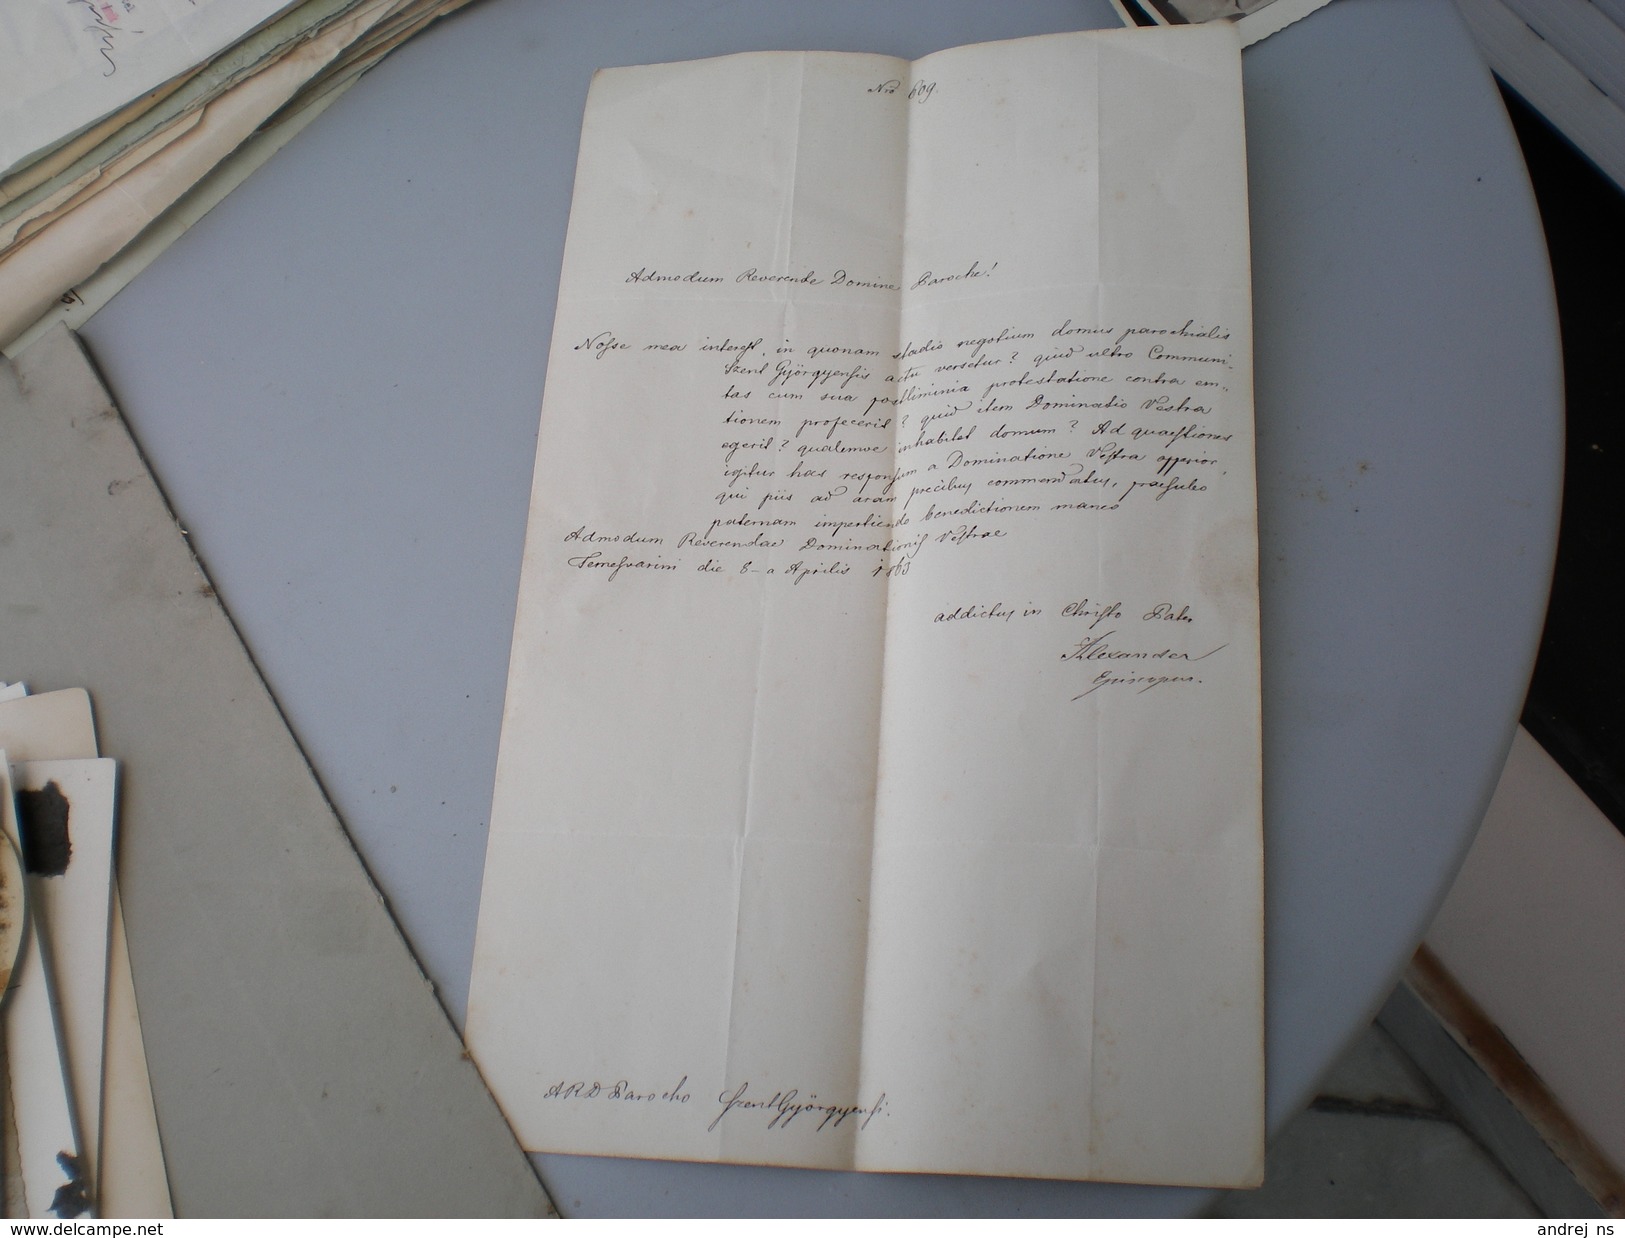 Nro 609.
Admodum Reverende Domine Paroche!
Nosse mea interest, in quonam stadio negotium domus parochialis
Szent Györgyensis actu versetur? quid ultro Communi-
tas cum sua postliminia protestatione contra em-
tionem profecerit? quid item Dominatio Vestra
egerit? qualemve inhabitet domum? Ad quaestiones
igitur has responsum a Dominatione Vestra opperior,
qui piis ad aram precibus commendatus, praesuleo
paternam impertiendo benedictionem maneo
Admodum Reverendae Dominationis Vestrae
Temesvarini die 8-a Aprilis 1863
addictus in Christo Pater
Alexander
Episcopus.
ARD Parocho SzentGyörgyensi.
delcampe.net
andrej ns